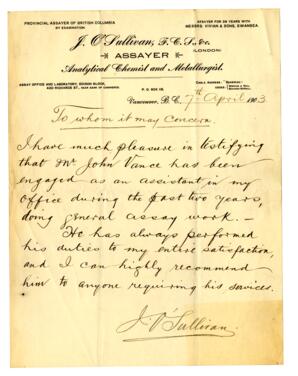 PROVINCIAL ASSAYER OF BRITISH COLUMBIA
BY EXAMINATION.
ASSAYER FOR 26 YEARS WITH
MESSRS. VIVIAN & SONS, SWANSEA.
J. O'Sullivan, F.C.S., &c.
(LONDON)
ASSAYER
Analytical Chemist and Metallurgist.
P. O. BOX
Vancouver, B.C. 7th April 1903
To whom it may Concern.
I have much pleasure in testifying
that Mr John Vance has been
engaged as an assistant in my
Office during the past two years,
doing general assay work. —
He has always performed
his duties to my entire satisfaction,
and I can highly recommend
him to anyone requiring his services.
J. O'Sullivan.